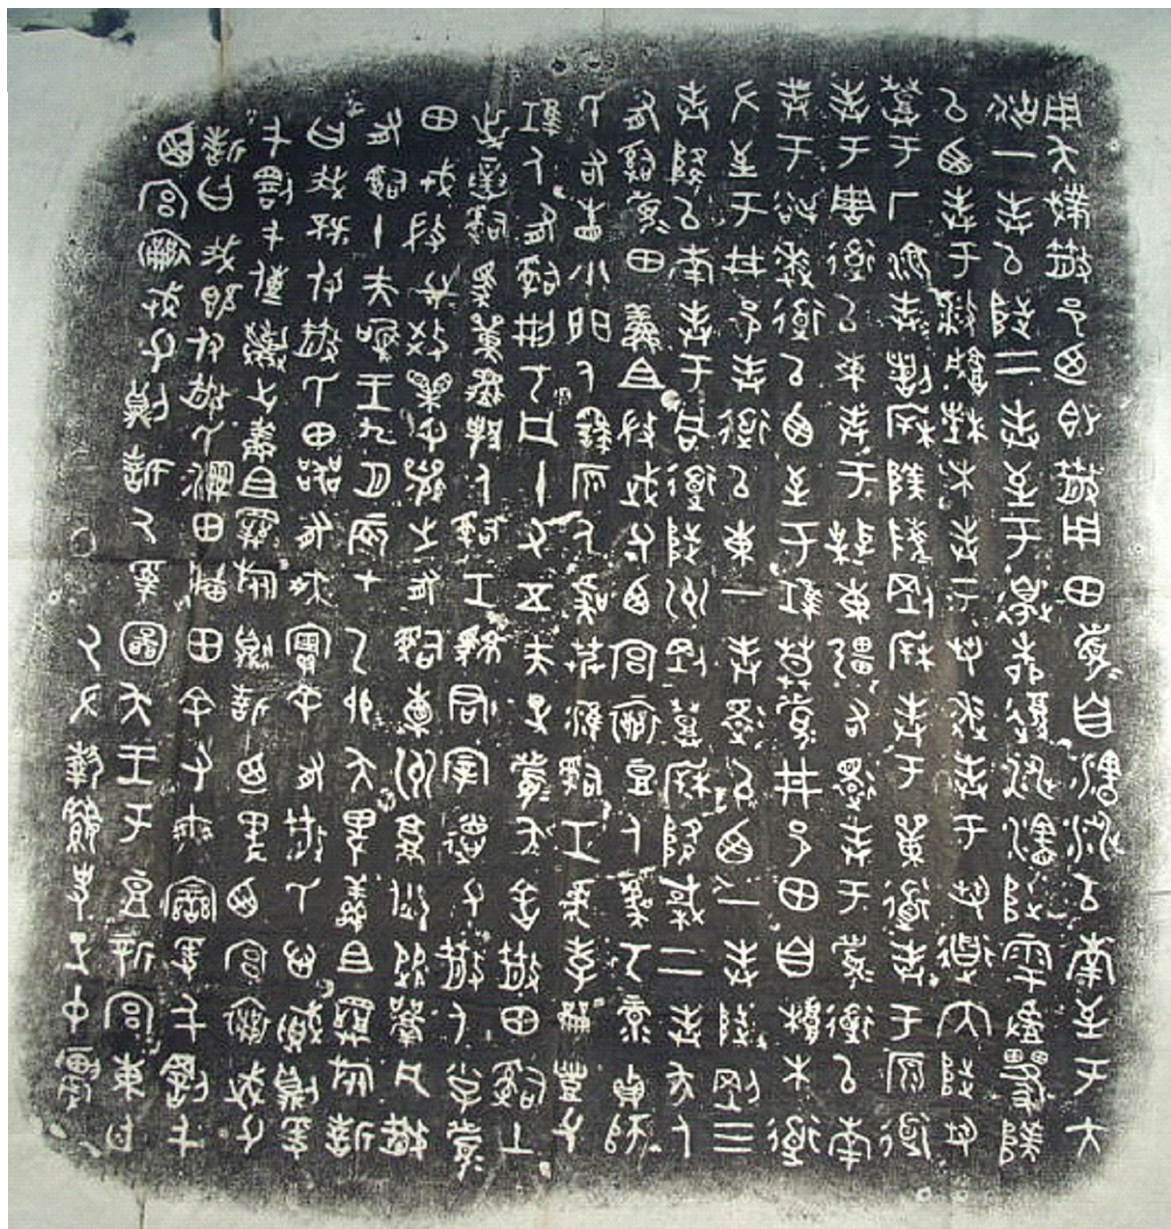 用夨𢾅散邑迺即散用田眉自瀗涉以南至于大
沽一奉以陟二奉至于邊柳復涉瀗陟雩𨻰
以西奉于播城楮木奉于芻逨奉于芻道内陟芻
登于厂湶奉諸𣐺𨻰陵剛𣐺奉于道奉于原道
奉于周道以東奉于東疆右還奉于眉道以南
奉于逨道以西至于莫眉井邑田自根木道
左至于井邑奉道以東一奉還以西一奉陟剛三
奉降以南奉于同道陟州剛登𣐺降棫二奉夨人
有𤔲眉田鮮且微武父西宮襄豆人虞丂彔貞師
氏右眚小門人原人虞艿淮𤔲工虎孝龠豐父
人有𤔲荊丂凡十又五夫正眉夨舍散田𤔲土
𤔲馬人𤔲工君宰德父散人小子眉
田戎微父效父襄之有𤔲橐州就焂從凡散
有𤔲十夫唯王九月辰才乙卯夨卑鮮且旅誓
曰我既付散氏田器有爽實余有散氏心賊則爰
千罰千傳棄之鮮且旅則誓迺卑西宮襄武父
誓曰我既付散氏濕田畛田余又爽變爰千罰千
西宮襄武父則誓厥受圖夨王于豆新宮東廷
厥左執史正中農